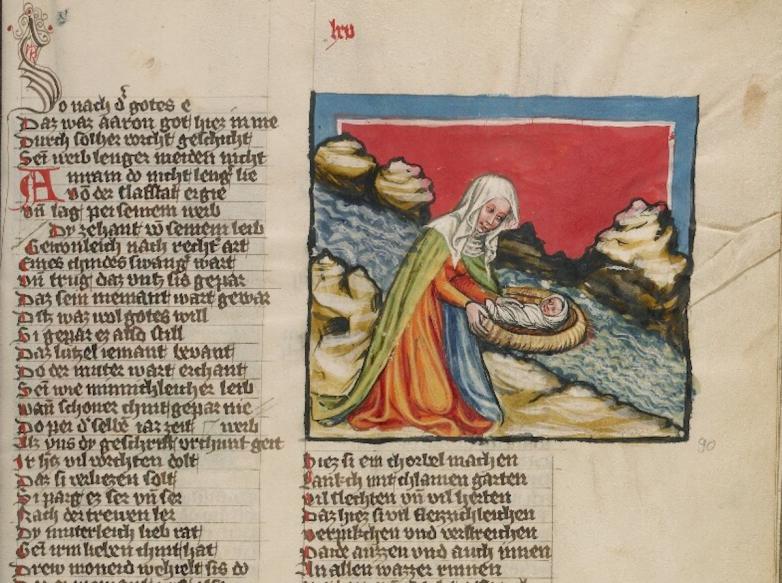 lxv
So nach d' gotes e
Daz waz aaron got hiez in me
Durch solher vorcht geschicht
Sein weib lenger meiden nicht
Amram do nicht leng' lie
Von der tlafftat ergie
Vn lag pei seinem weib
Dy zehant von seinem leib
Gewonleich nach recht art
Eines chindes swang' wart
Vn trug daz vntz si's gepar
Daz sein niemant wart gewar
Ditz waz wol gotes will
Si gepar ez also still
Daz lützel iemant bevant
Do der muter wart erchant
Sein wie minnichleicher leib
wan schoner chint gepar nie
Do pei d' selbe iar zeit weib
Als vns dy geschrift vrchunt geit
Ir h's vil vorchten dolt
Daz si verliezen solt
Si parg ez ser vn ser
Nach der trewen ler
Dy muterleich lieb rat
Gein irm lieben chint hat
Drew moneid wehielt sis do
hiez si ein chorbel machen
chlainen gärten
vil slechten vn vil herten
Daz hiez si vil fleizzichleichen
verpikchen vnd verstreichen
Paide auzzen vnd auch innen
In allen wazzer rinnen
90